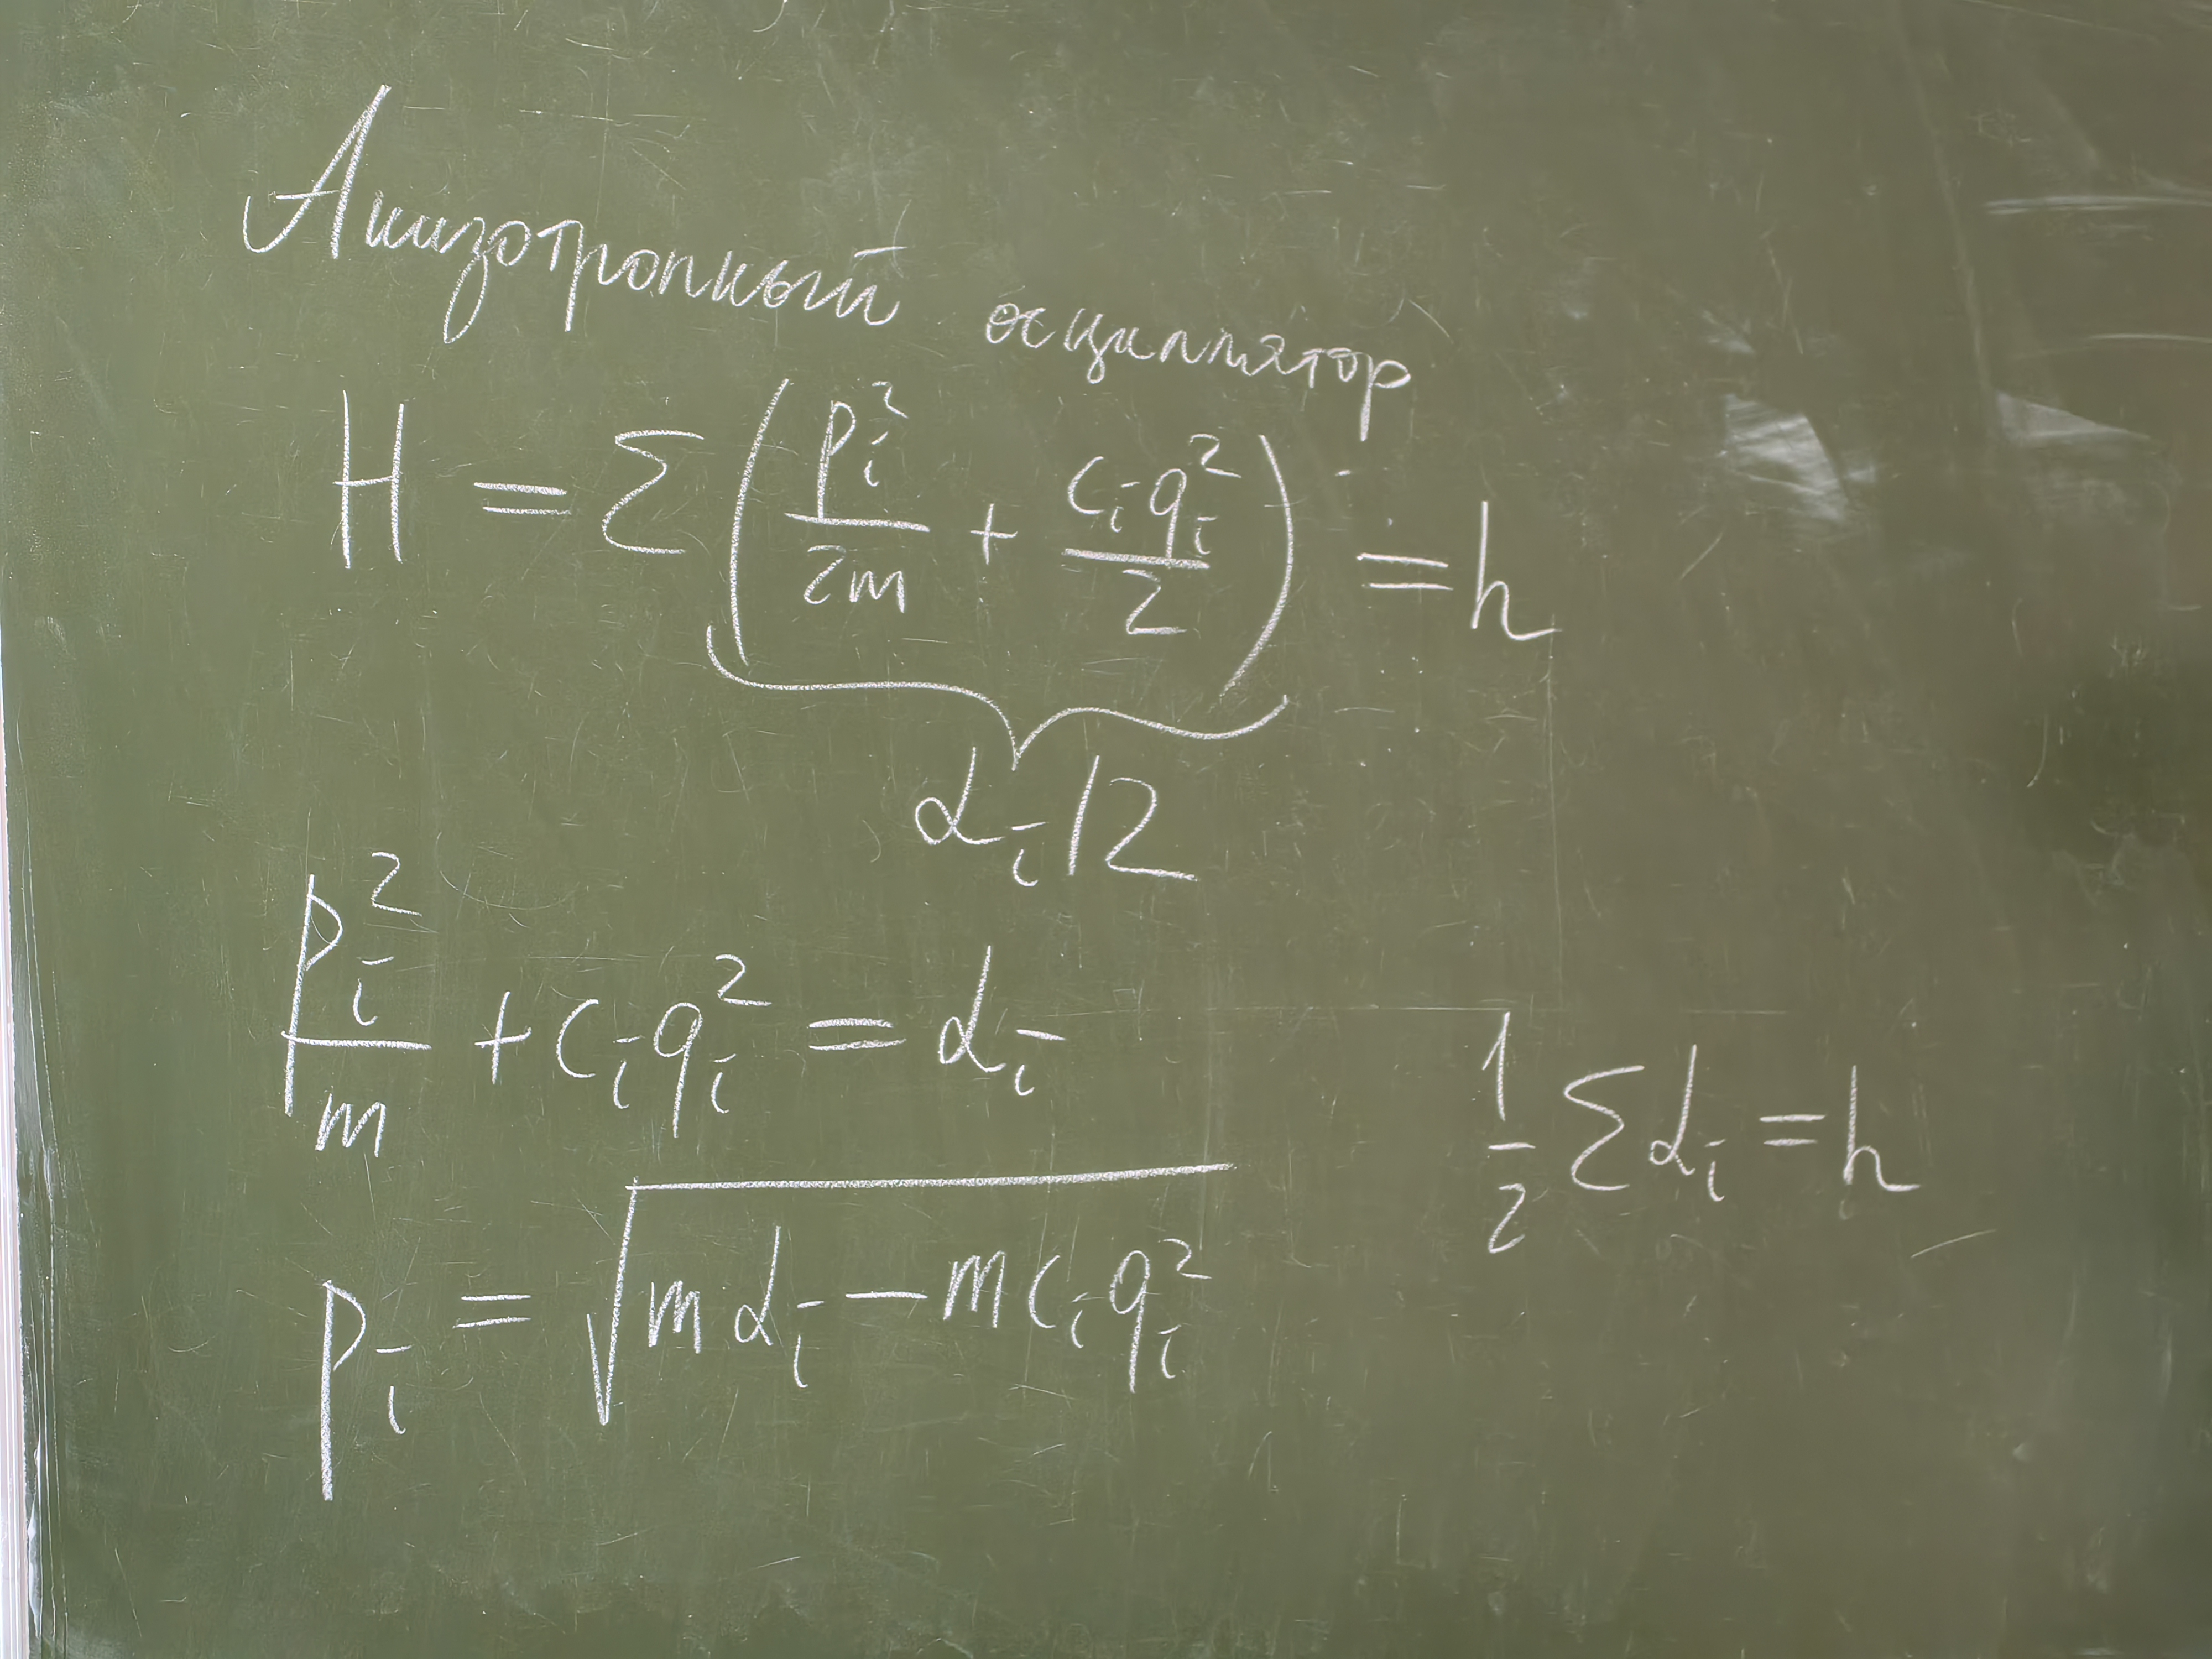 Анизотропный осциллятор
H = Σ (p_i^2/2m + c_i q_i^2/2) = h
α_i/2
p_i^2/m + c_i q_i^2 = α_i
1/2 Σ α_i = h
p_i = √(m α_i − m c_i q_i^2)